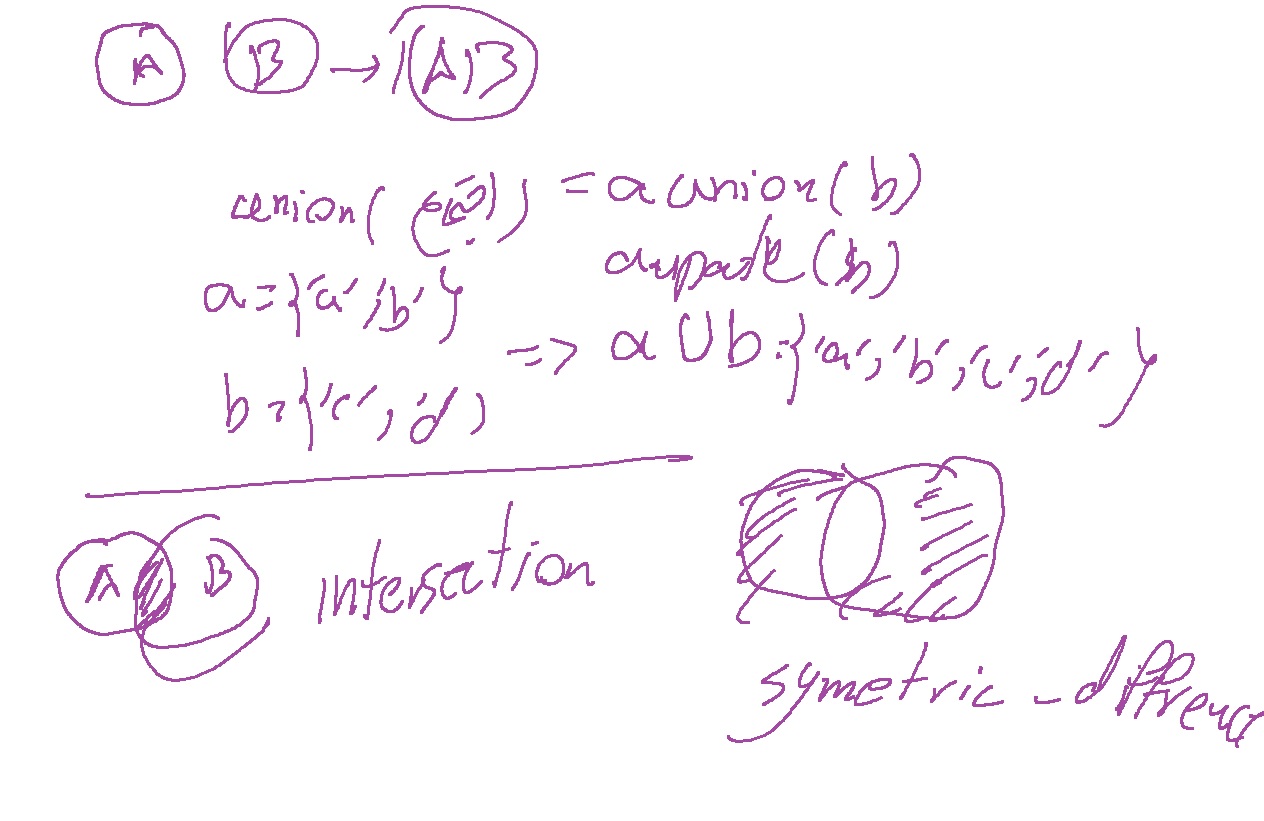 A B → A B
union( ) = a union(b)
a update(b)
a={'a','b'}
b={'c','d}
=> a U b={'a','b','c','d'}
A B intersction
symetric_diffrenc